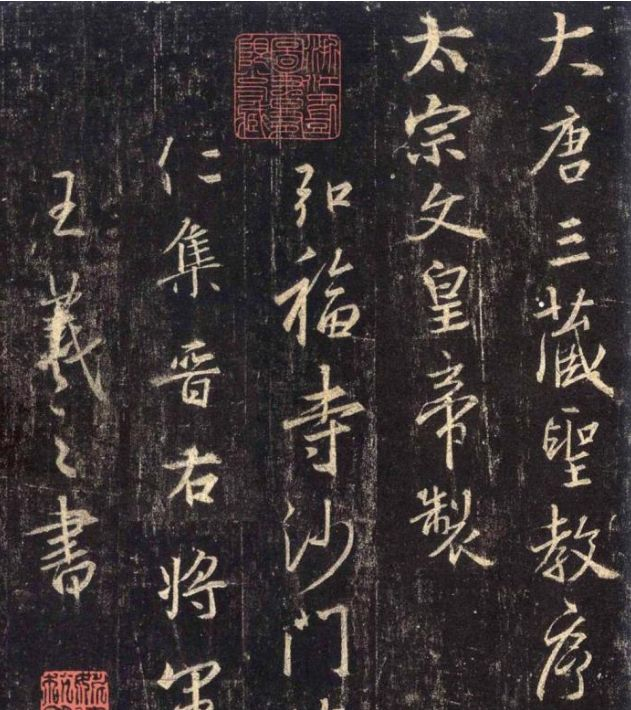 大唐三藏聖教序
太宗文皇帝製
弘福寺沙門
仁集晋右将軍
王羲之書